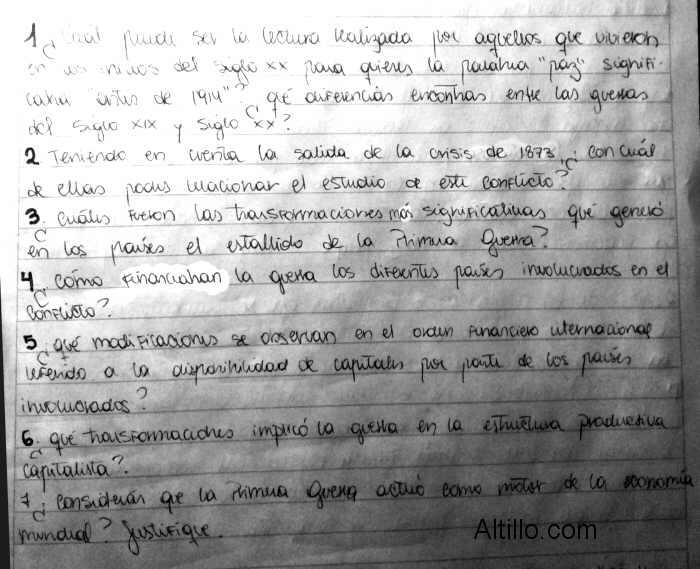 1 ¿Cuál puede ser la lectura realizada por aquellos que vivieron
en los inicios del siglo xx para quienes la palabra "paz" signifi-
caba "antes de 1914"? ¿qué diferencias encontras entre las guerras
del siglo XIX y siglo xx?
2 Teniendo en cuenta la salida de la crisis de 1873, ¿con cuál
de ellas podes relacionar el estudio de este conflicto?
3. ¿cuáles fueron las transformaciones más significativas que generó
en los países el estallido de la Primera Guerra?
4. ¿cómo financiaban la guerra los diferentes países involucrados en el
conflicto?
5. ¿qué modificaciones se observan en el orden financiero internacional
referido a la disponibilidad de capitales por parte de los países
involucrados?
6. ¿qué transformaciones implicó la guerra en la estructura productiva
capitalista?
7. ¿consideran que la Primera Guerra actuó como motor de la economía
mundial? Justifique.
Altillo.com